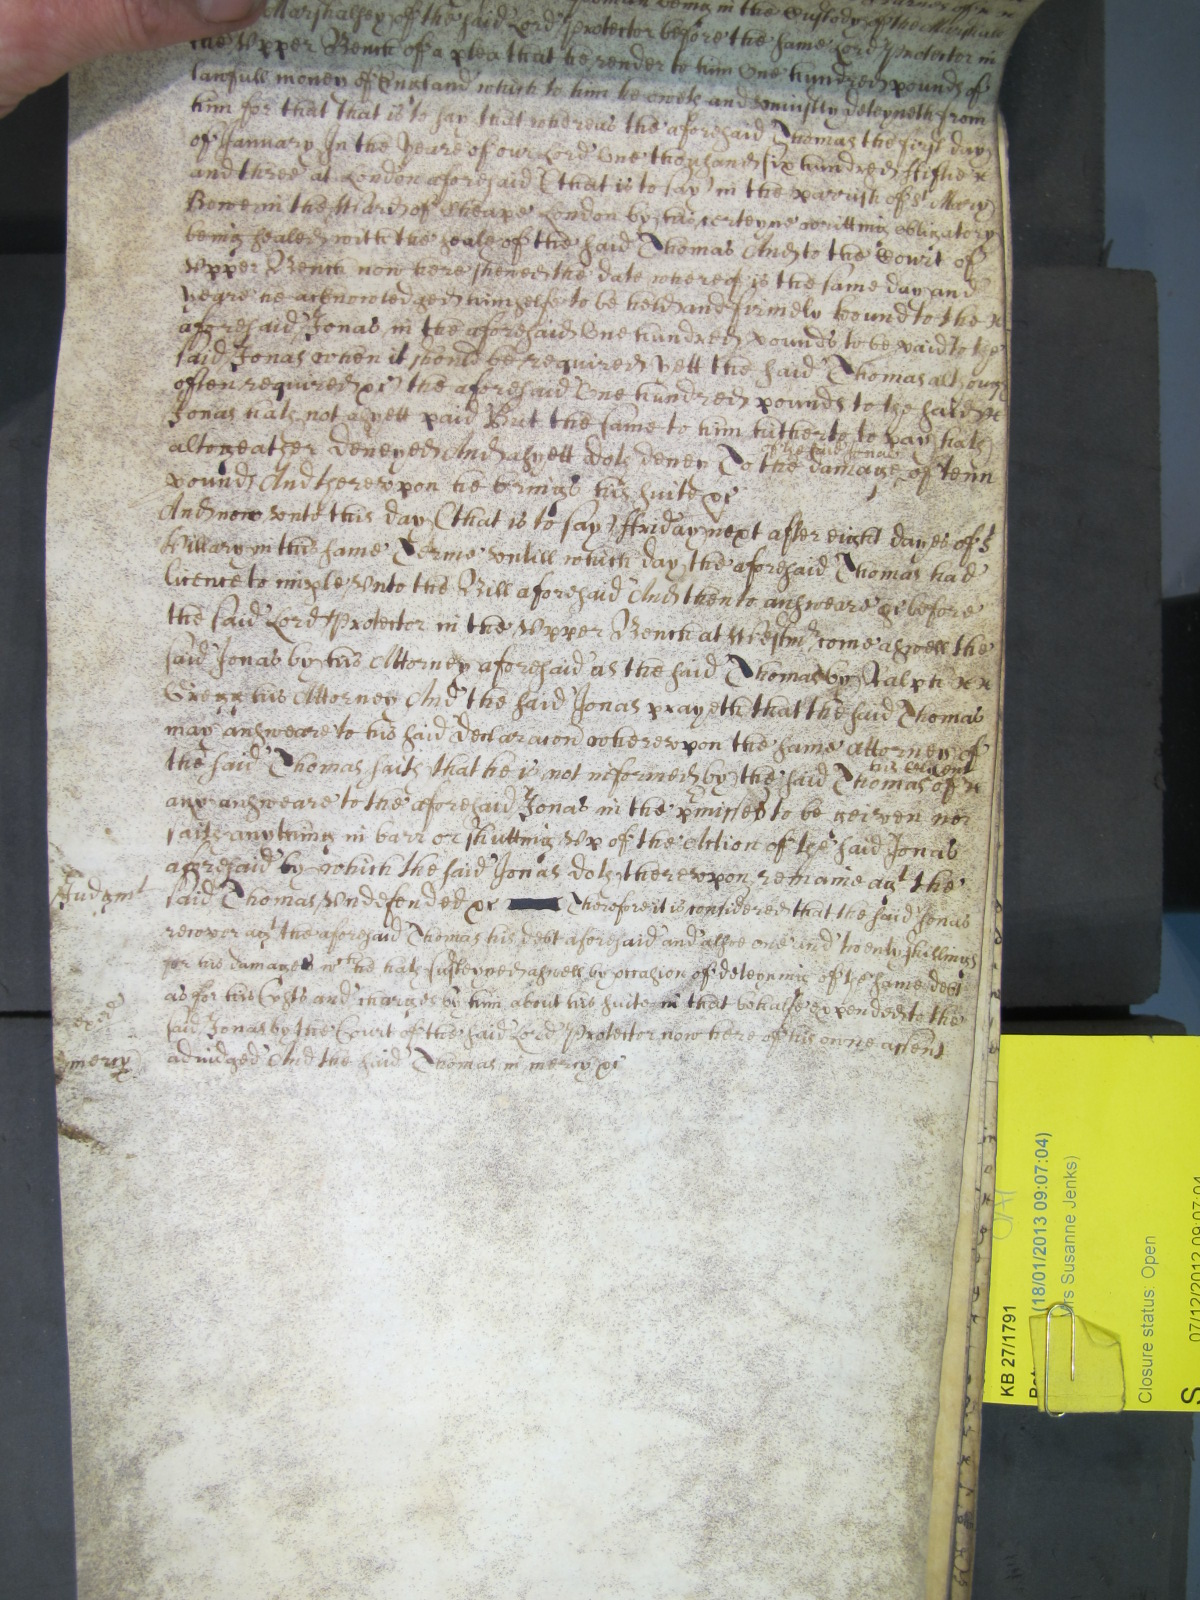 being in the Custody of the Marshall
Marshalsey of the said Lord Protector before the same Lord Protector in
the Upper Bench of a plea that he render to him One hundred pounds of
lawfull money of England which to him he oweth and uniustly deteyneth from
him for that that is to say that whereas the aforesaid Thomas the first day
of January In the Yeare of our Lord One thousand six hundred fiftie x
and three at London aforesaid (that is to say) in the parrish of St Mary
Bowe in the Ward of Cheape London by his certeyne writting obligatory
being sealed with the seale of the said Thomas And to the Court of
Upper Bench now here shewed the date whereof is the same day and
yeare he acknowledged himselfe to be held and firmely bound to the x
aforesaid Jonas in the aforesaid One hundred pounds to be paid to the
said Jonas when it should be required Yett the said Thomas although
often required &c the aforesaid One hundred pounds to the said x
Jonas hath not as yett paid But the same to him hitherto to pay hath
altogeather denyed And as yett doth deney To the damage of the said Jonas of tenn
pounds And thereupon he brings his suite &c
And now unto this day (that is to say) ffriday next after eight dayes of St
Hillary in this same Terme untill which day the aforesaid Thomas had
licence to imple unto the Bill aforesaid And then to answeare &c before
the said Lord Protector in the Upper Bench at Westmr come aswell the
said Jonas by his Attorney aforesaid as the said Thomas by Ralph x x
Gregg his Attorney And the said Jonas prayeth that the said Thomas
may answeare to his said declaracon whereupon the same Attorney of
the said Thomas saith that he is not informed by the said Thomas his Client of x
any answeare to the aforesaid Jonas in the pmisses to be geiven nor
saith anything in barr or shutting up of the Action of the said Jonas
aforesaid by which the said Jonas doth thereupon remaine agt the
Judgmt
said Thomas undefended &c Therefore it is considered that the said Jonas
recover agt the aforesaid Thomas his debt aforesaid and alsoe one and twenty shillings
for his damages wch he hath susteyned aswell by occasion of deteyning of the same debt
as for his Costs and charges by him about his suite in that behalfe expended to the
said Jonas by the Court of the said Lord Protector now here of his owne assent
mercy
adiudged And the said Thomas in mercy &c
KB 27/1791
(18/01/2013 09:07:04)
rs Susanne Jenks)
Closure status: Open
07/12/2012 09:07:04
S